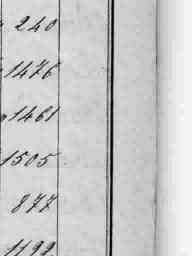 240
1476
1461
1505
877
1199